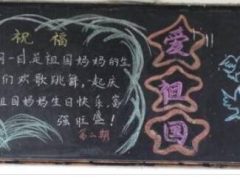 祝福
月一日是祖国妈妈的生
们欢歌跳舞,一起庆
祖国妈妈生日快乐,富
强旺盛!
第二期
爱祖国